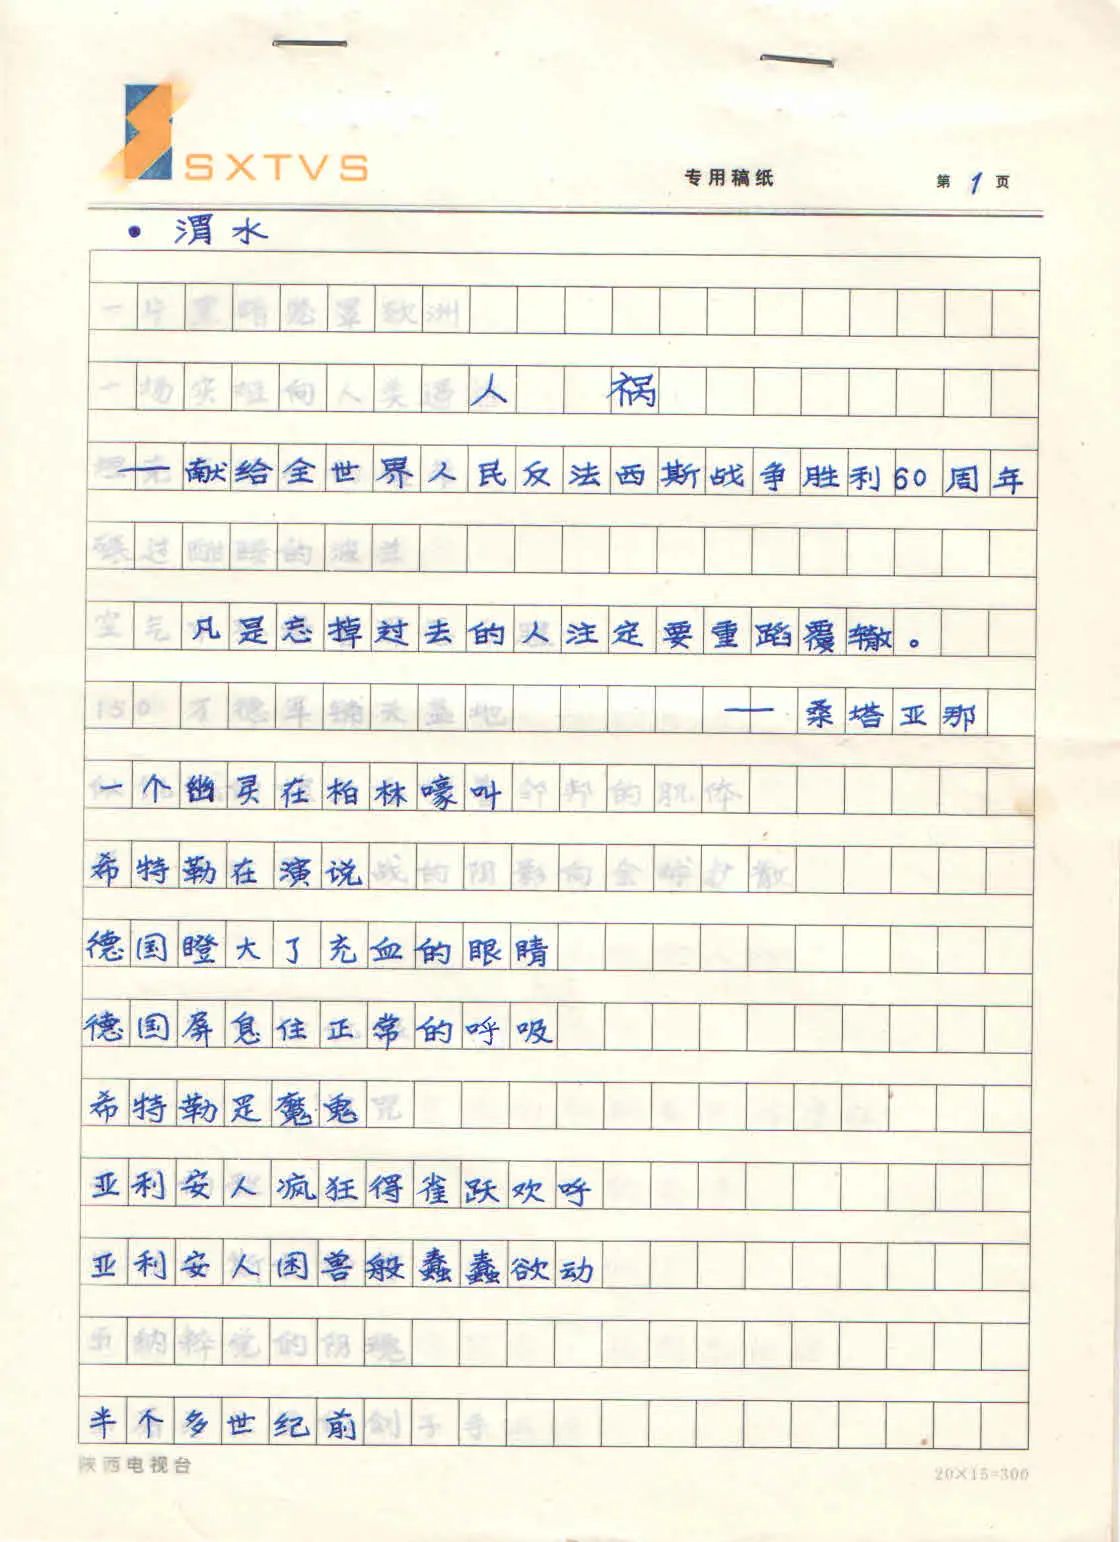 SXTVS
专用稿纸
第1页
• 渭水
人 祸
——献给全世界人民反法西斯战争胜利60周年
凡是忘掉过去的人注定要重蹈覆辙。
——桑塔亚那
一个幽灵在柏林嚎叫
希特勒在演说
德国瞪大了充血的眼睛
德国屏息住正常的呼吸
希特勒是魔鬼
亚利安人疯狂得雀跃欢呼
亚利安人困兽般蠢蠢欲动
半个多世纪前
陕西电视台
20×15=300